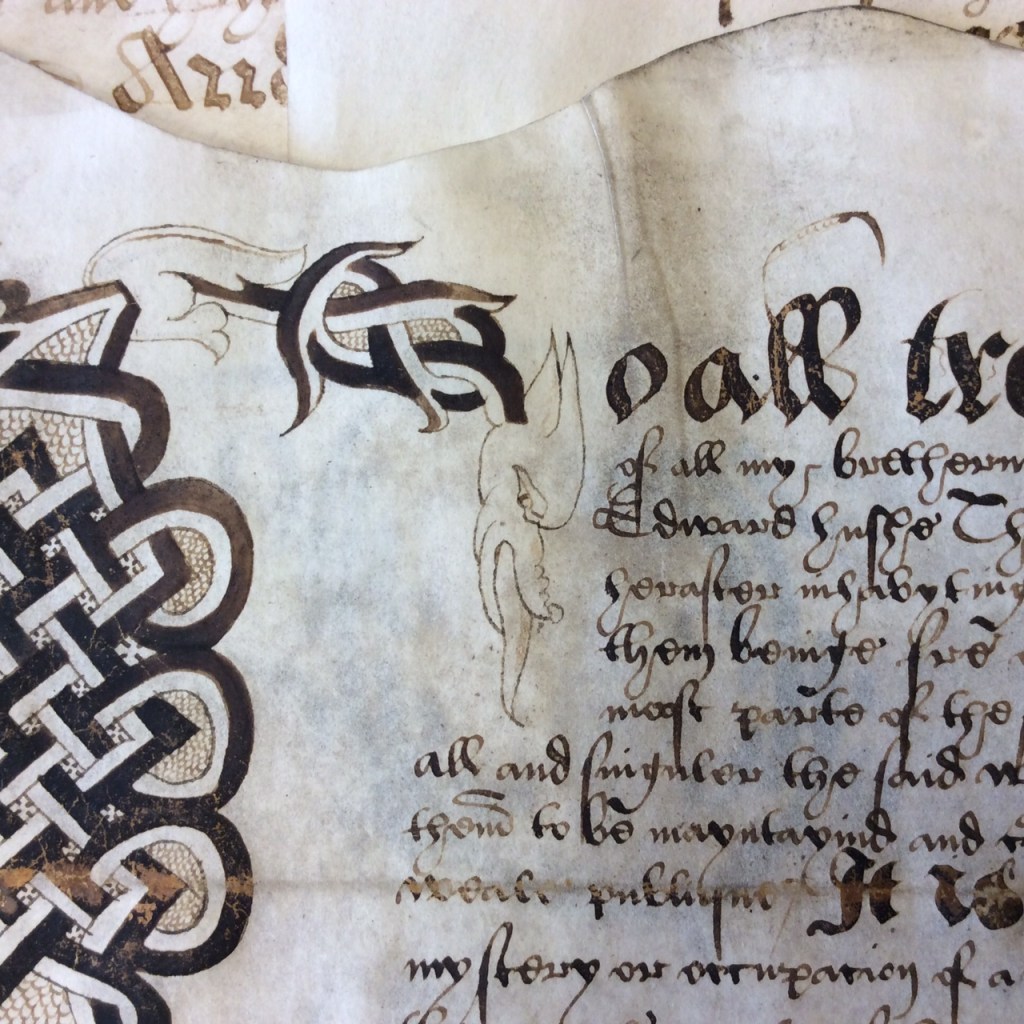 To all tre
of all my bretherin
Edward hushe Th
herafter inhabyting
them beinge fre
most parte of the
all and singuler the said
them to be mayntayind and
weale publique It is
mystery or occupacion of a